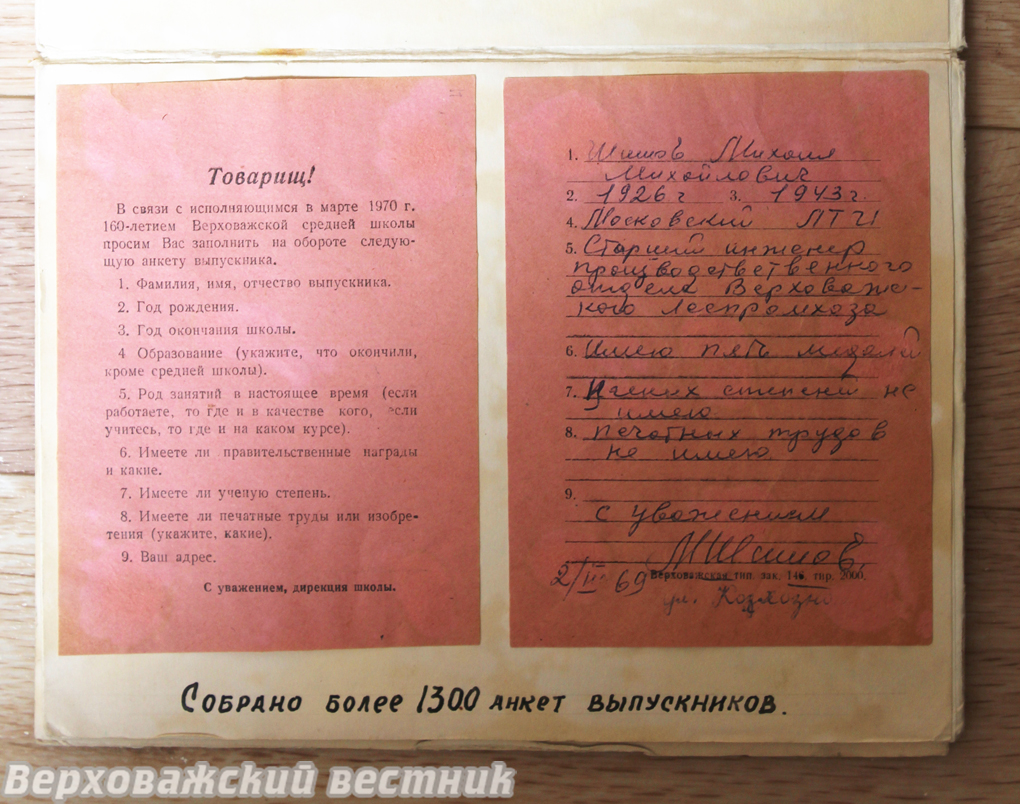 Товарищ!
В связи с исполняющимся в марте 1970 г.
160-летием Верховажской средней школы
просим Вас заполнить на обороте следую-
щую анкету выпускника.
1. Фамилия, имя, отчество выпускника.
2. Год рождения.
3. Год окончания школы.
4 Образование (укажите, что окончили,
кроме средней школы).
5. Род занятий в настоящее время (если
работаете, то где и в качестве кого, если
учитесь, то где и на каком курсе).
6. Имеете ли правительственные награды
и какие.
7. Имеете ли ученую степень.
8. Имеете ли печатные труды или изобре-
тения (укажите, какие).
9. Ваш адрес.
С уважением, дирекция школы.
1. Шишов Михаил
Михайлович
2. 1926 г 3. 1943 г.
4. Московский ЛТИ
5. Старший инженер
производственного
отдела Верховаж-
кого Леспромхоза
6. Имею пять медалей
7. Ученых степеней не
имею
8. Печатных трудов
не имею
9.
с уважением
МШишов
2/III 69 Верховажская тип. зак. 146, тир. 2000.
ул.
Собрано более 1300 анкет выпускников.
Верховажский вестник